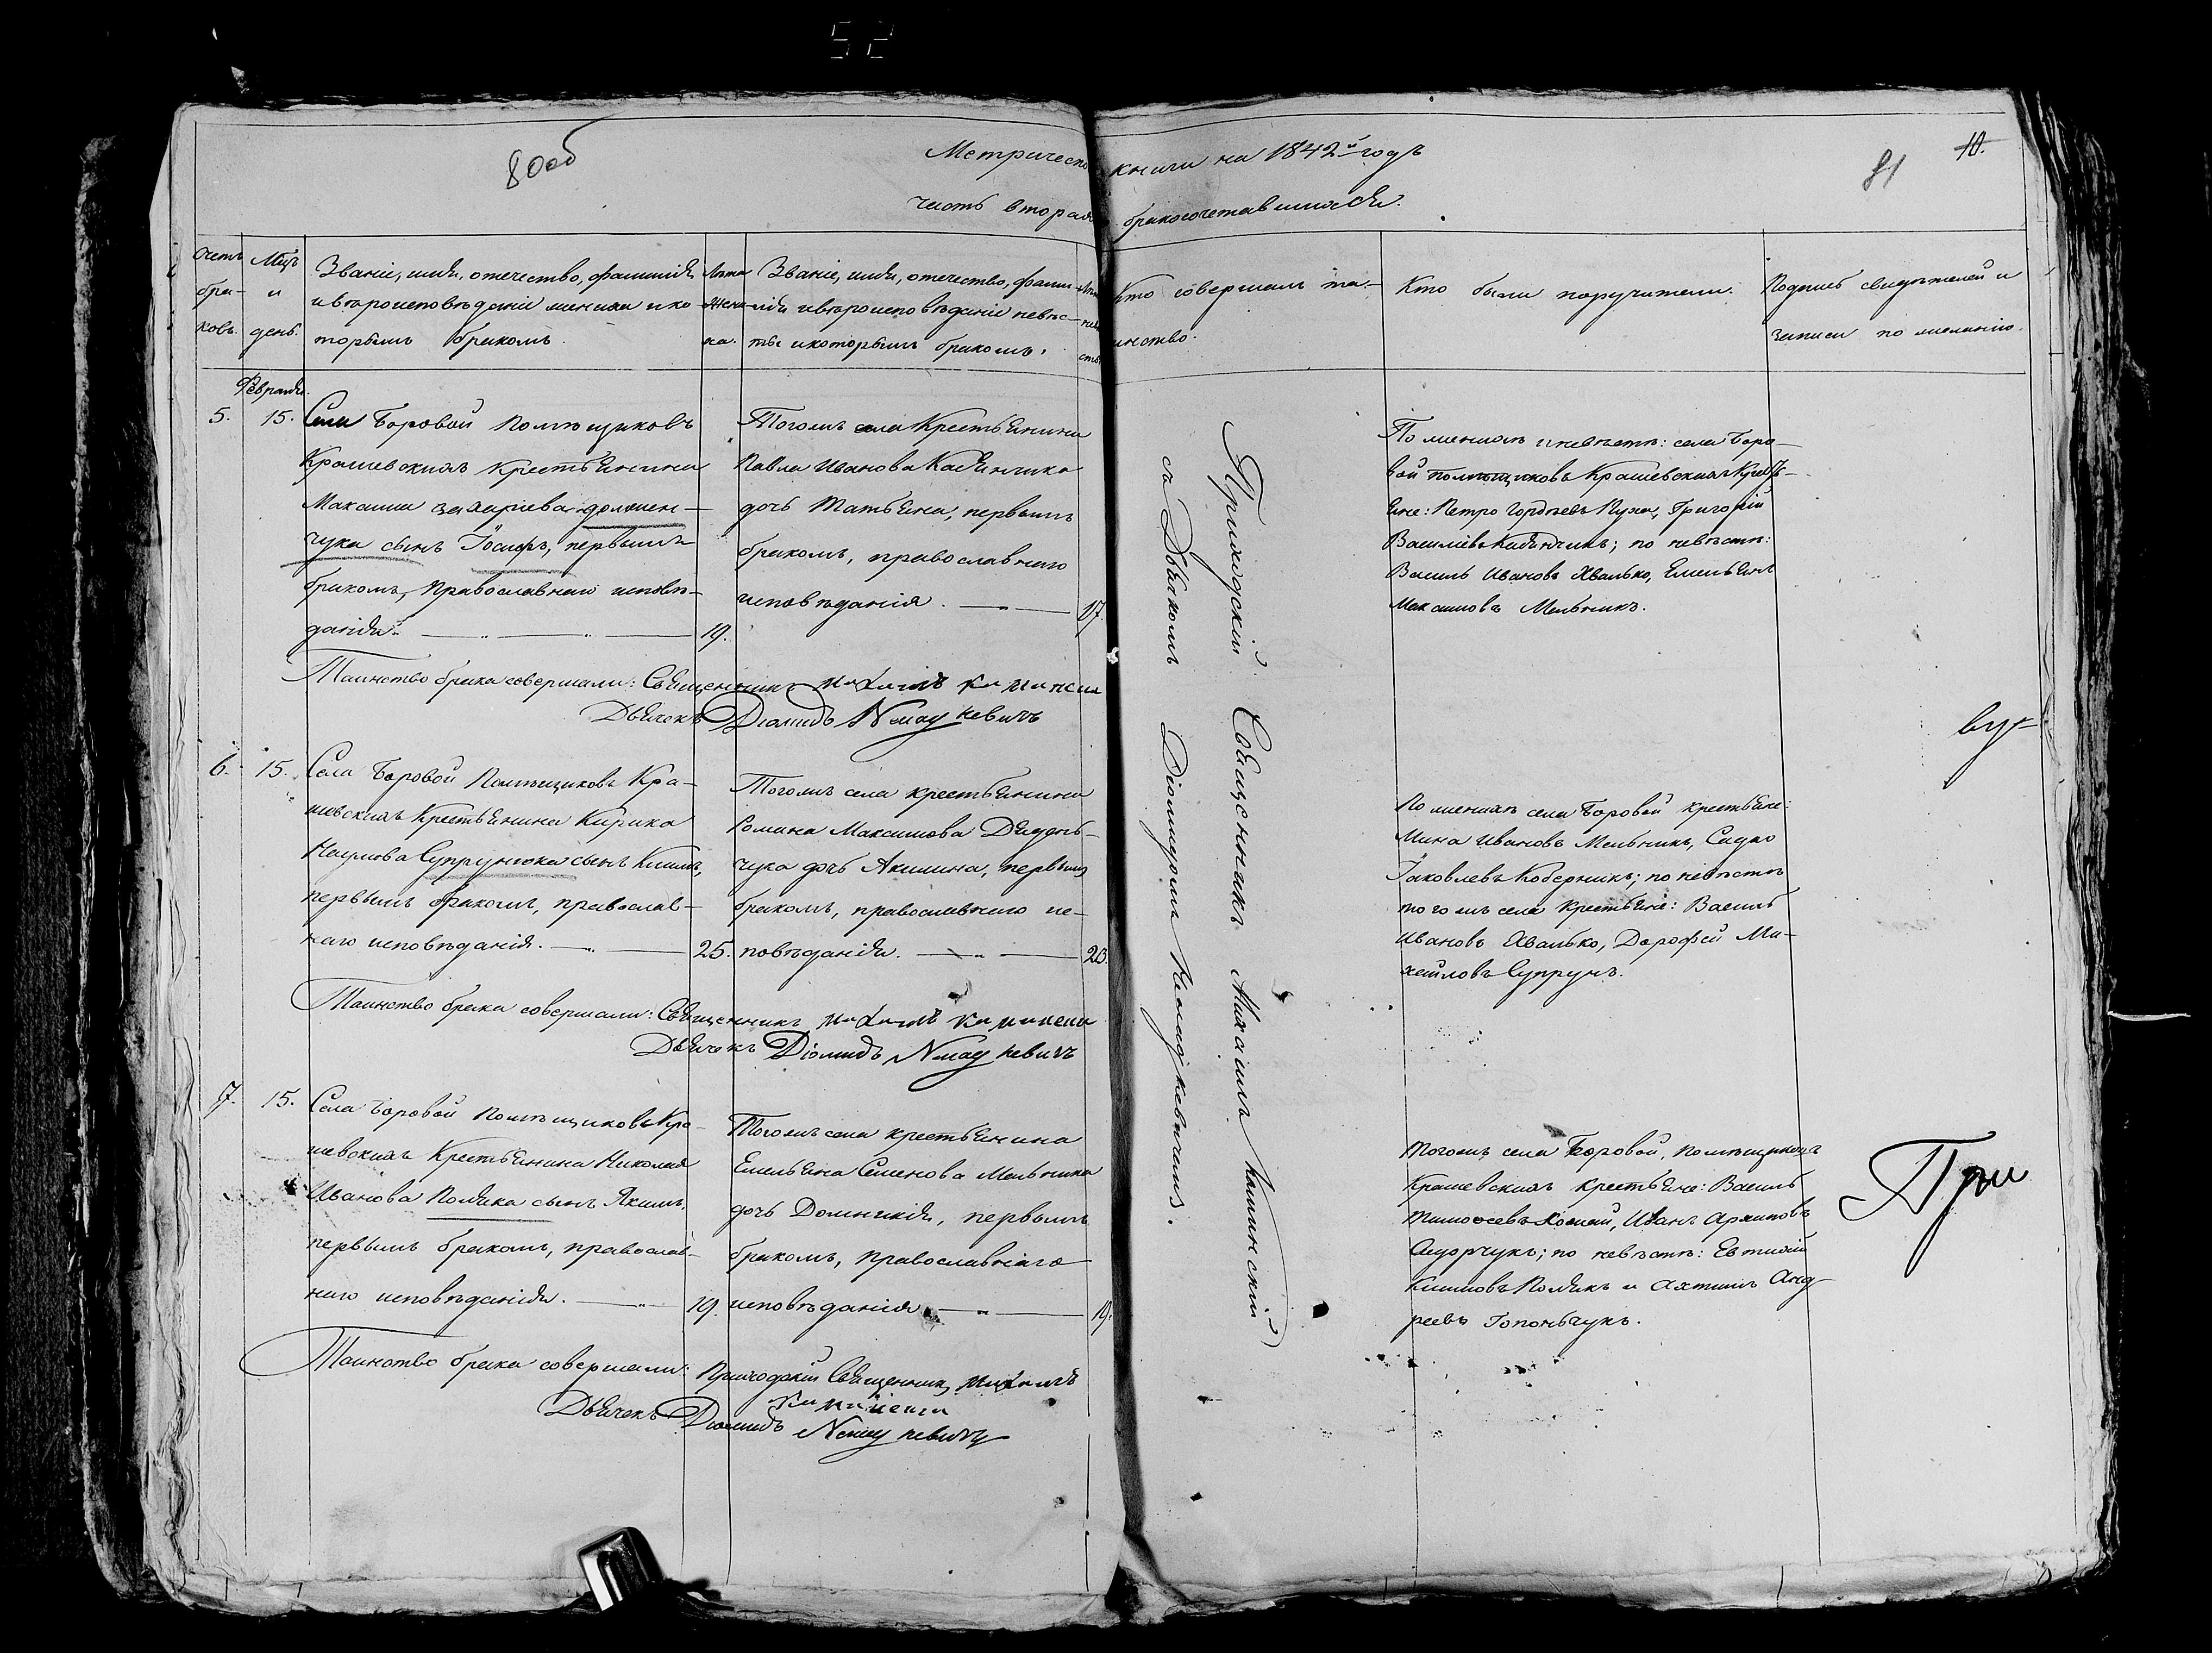 52
80об
Метрической книги на 1842й годъ
81
10.
часть вторая бракосочетавшихся.
Счетъ бра- ковъ.
Мцъ и день.
Званіе, имя, отечество, фамилія
и вѣроисповѣданіе жениха и ко-
торымъ бракомъ.
Лѣта жени- ха.
Званіе, имя, отечество, фами-
лія и вѣроисповѣданіе невѣс-
ты и которымъ бракомъ.
Лѣта невѣ- сты
Кто совершалъ та-
инство.
Кто были поручители.
Подпись свидѣтелей и
записи по желанію.
Февраля.
5. 15.
Села Боровой Помѣщиковъ
Крашевскихъ крестьянина
Максима Захаріева должен-
чука сынъ Іосифъ, первымъ
бракомъ, православнаго исповѣ-
данія. 19.
Тогожъ села Крестьянина
Павла Иванова
дочь Татьяна, первымъ
бракомъ, православнаго
исповѣданія. 17.
По женихѣ и невѣстѣ: села Боро-
вой помѣщиковъ Крашевскихъ Кресть-
яне: Петро Гордѣевъ Григорій
Василіевъ по невѣстѣ:
Василь Ивановъ Хвалько, Емельянъ
Максимовъ Мельникъ.
Таинство брака совершали: Священникъ Михаилъ
Дьячокъ Діомидъ
6. 15.
Села Боровой Помѣщиковъ Кра-
шевскихъ Крестьянина Кирика
Наумова Супрунюка сынъ Климъ,
первымъ бракомъ, православ-
наго исповѣданія. 25.
Тогожъ села крестьянина
Романа Максимова
чука дочь Акилина, первымъ
бракомъ, православнаго ис-
повѣданія. 20.
По женихѣ села Боровой крестьяне:
Мина Ивановъ Мельникъ,
Іаковлевъ Коберникъ; по невѣстѣ
тогожъ села крестьяне: Василь
Ивановъ Хвалько, Дорофей Ми-
хайловъ Супрунъ.
Таинство брака совершали: Священникъ Михаилъ
Дьячокъ Діомидъ
7. 15.
Села Боровой Помѣщиковъ Кра-
шевскихъ Крестьянина Николая
Иванова Поляка сынъ Якимъ,
первымъ бракомъ, православ-
наго исповѣданія. 19.
Тогожъ села крестьянина
Емельяна Семенова Мельника
дочь Домникія, первымъ
бракомъ, православнаго
исповѣданія 19.
Тогожъ села Боровой, помѣщиковъ
Крашевскихъ крестьяне: Василь
Тимоѳеевъ Иванъ Архиповъ
по невѣстѣ: Евтихій
Климовъ Полякъ и Анд-
реевъ
Таинство брака совершали: Приходскій Священникъ Михаилъ
Дьячекъ Діомидъ
Приходскій Священникъ Михаилъ
съ Дьякомъ Діомидомъ
При